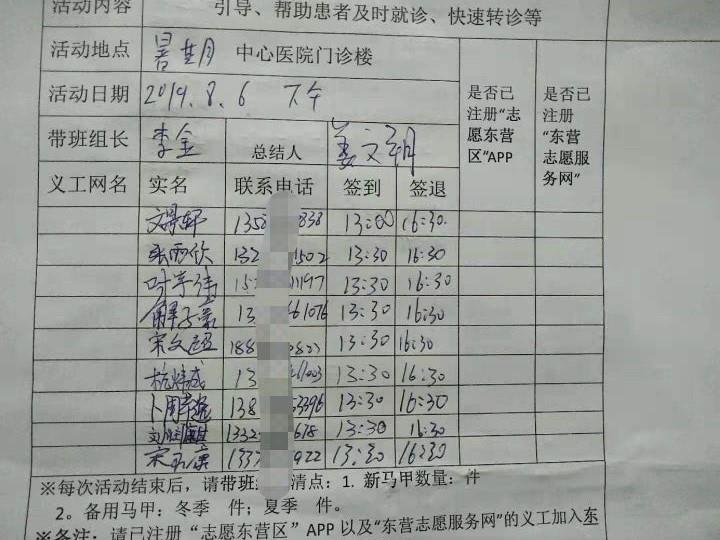 活动内容 引导、帮助患者及时就诊、快速转诊等
活动地点 暑期 中心医院门诊楼
活动日期 2019.8.6 下午
是否已注册“志愿东营区”APP
是否已注册“东营志愿服务网”
带班组长 李金 总结人 姜文朝
义工网名 实名 联系电话 签到 签退
135 838 13:00 16:30.
张雨欣 132 1502 13:30 16:30
叶宇 15 1197 13:30 16:30
解子 13 61076 13:30 16:30
宋文超 188 882 13:30 16:30
杭炜成 13 1003 13:30 16:30
卜周 138 53396 13:30 16:30
刘 1332 618 13:30 16:30
宋 133 922 13:30 16:30
※每次活动结束后，请带班 清点：1. 新马甲数量： 件
2。备用马甲：冬季 件；夏季 件。
※备注：请已注册“志愿东营区”APP以及“东营志愿服务网”的义工加入东